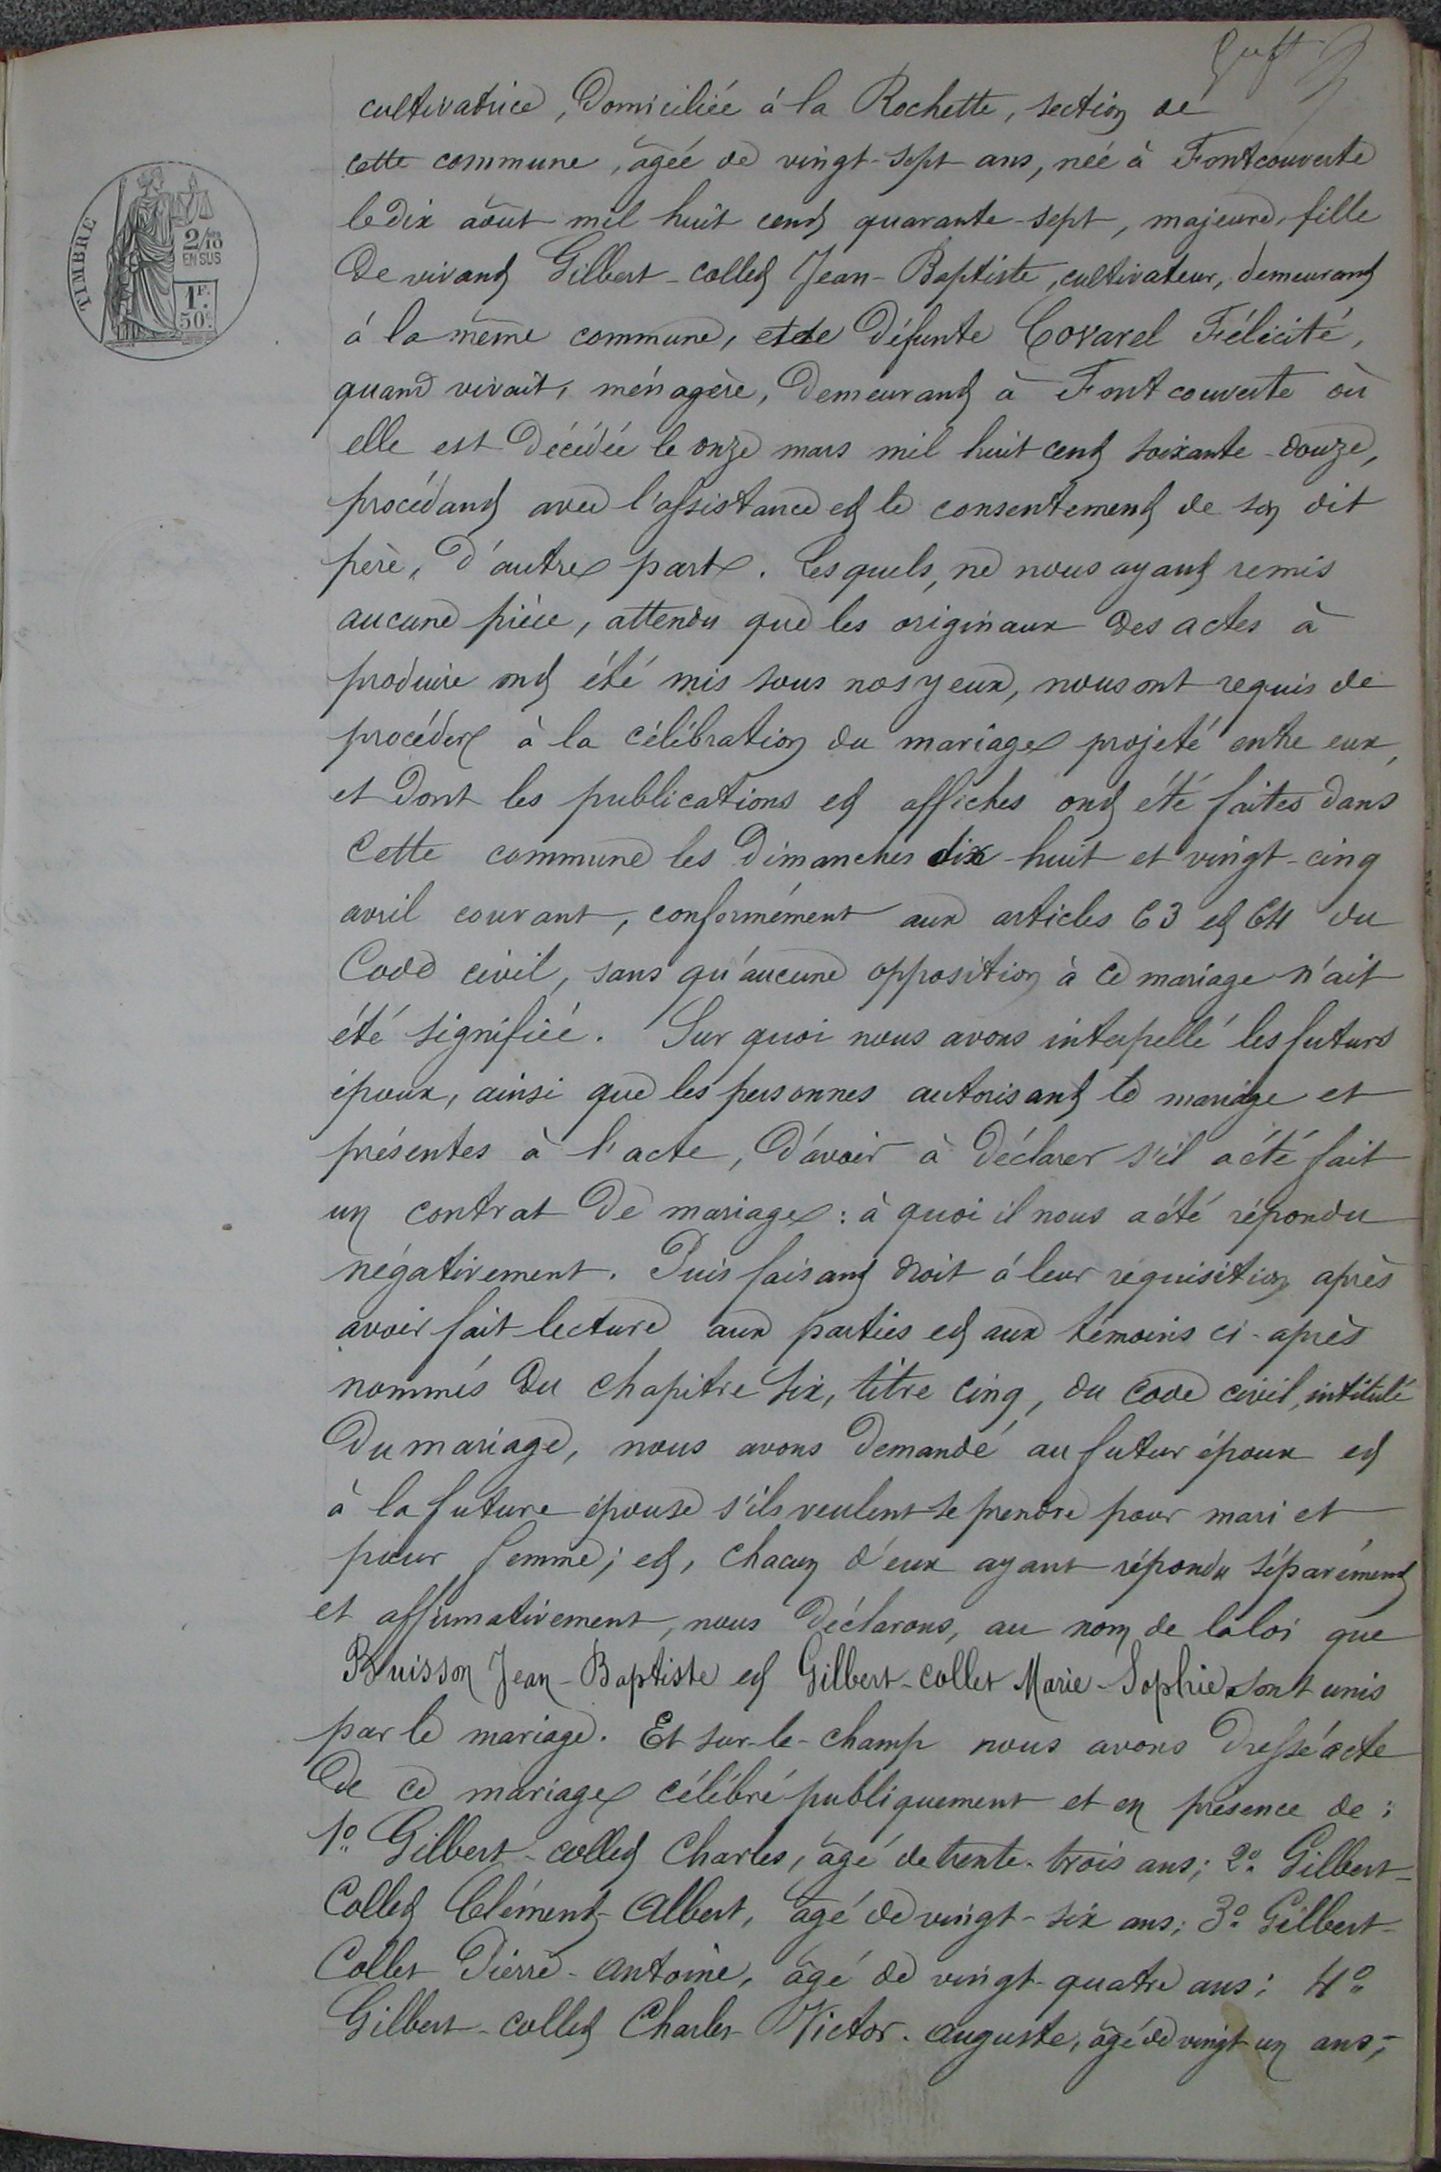 TIMBRE
2/10
EN SUS
1F.
50c.
cultivatrice, domiciliée à la Rochette, section de
cette commune, âgée de vingt-sept ans, née à Fontcouverte
le dix août mil huit cent quarante-sept, majeure, fille
de vivant Gilbert-Collet Jean-Baptiste, cultivateur, demeurant
à la même commune, et de défunte Covarel Félicité,
quand vivait, ménagère, demeurant à Fontcouverte où
elle est décédée le onze mars mil huit cent soixante-douze,
procédant avec l'assistance et le consentement de son dit
père, d'autre part. Lesquels, ne nous ayant remis
aucune pièce, attendu que les originaux des actes à
produire ont été mis sous nos yeux, nous ont requis de
procéder à la célébration du mariage projeté entre eux,
et dont les publications et affiches ont été faites dans
cette commune les dimanches dix-huit et vingt-cinq
avril courant, conformément aux articles 63 et 64 du
Code civil, sans qu'aucune opposition à ce mariage n'ait
été signifiée. Sur quoi nous avons interpellé les futurs
époux, ainsi que les personnes autorisant le mariage et
présentes à l'acte, d'avoir à déclarer s'il a été fait
un contrat de mariage : à quoi il nous a été répondu
négativement. Puis faisant droit à leur requisition, après
avoir fait lecture aux parties et aux témoins ci-après
nommés du chapitre six, titre cinq, du Code civil, intitulé
Du mariage, nous avons demandé au futur époux et
à la future épouse s'ils veulent se prendre pour mari et
pour femme ; et, chacun d'eux ayant répondu séparément
et affirmativement, nous déclarons, au nom de la loi que
Buisson Jean-Baptiste et Gilbert-Collet Marie-Sophie sont unis
par le mariage. Et sur-le-champ nous avons dressé acte
de ce mariage célébré publiquement et en présence de :
1o Gilbert-Collet Charles, âgé de trente-trois ans ; 2o Gilbert-
Collet Clément-Albert, âgé de vingt-six ans ; 3o Gilbert-
Collet Pierre-Antoine, âgé de vingt-quatre ans ; 4o
Gilbert-Collet Charles-Victor-Auguste, âgé de vingt-un ans ;